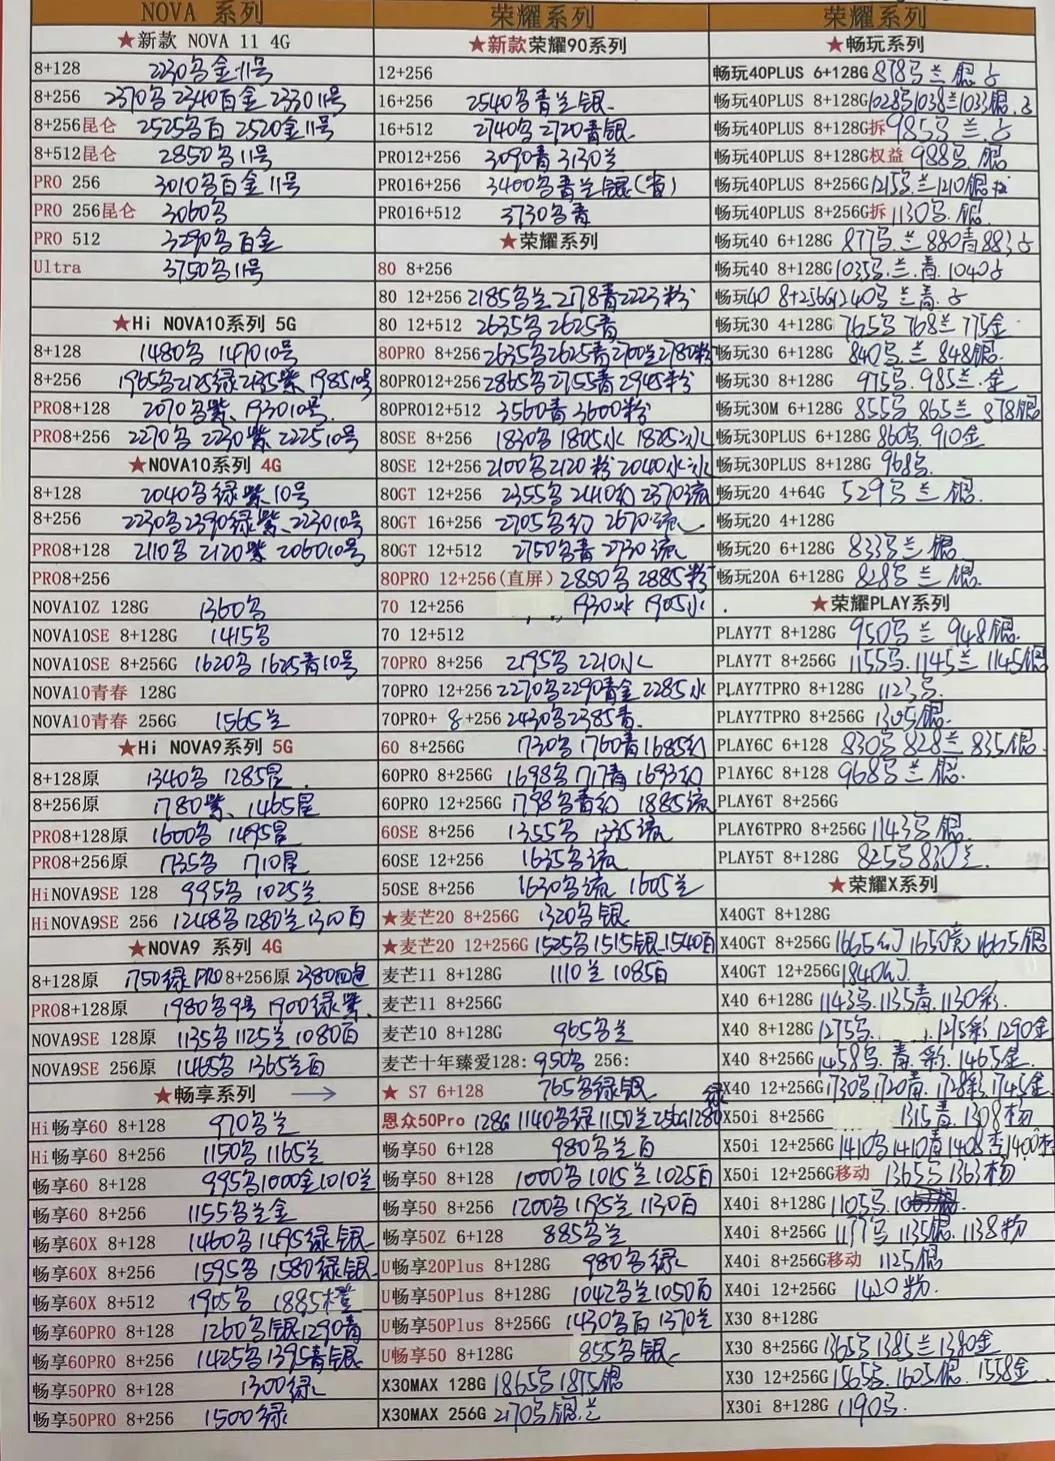 NOVA 系列
★新款 NOVA 11 4G
8+128 2230各金11号
8+256 2370各 2340百金 2330 11号
8+256昆仑 2525各百 2520金11号
8+512昆仑 2850各11号
PRO 256 3010各百金11号
PRO 256昆仑 3060各
PRO 512 3290各百金
Ultra 3750各11号
★Hi NOVA10系列 5G
8+128 1480各 1470 10号
8+256 1965各2125绿2135紫 1985 10号
PRO8+128 2070各紫、1930 10号
PRO8+256 2270各 2230紫 2225 10号
★NOVA10系列 4G
8+128 2040各绿紫、10号
8+256 2230各2390绿紫、2230 10号
PRO8+128 2110各 2120紫 2060 10号
PRO8+256
NOVA10Z 128G 1360各
NOVA10SE 8+128G 1415各
NOVA10SE 8+256G 1620各 1625青10号
NOVA10青春 128G
NOVA10青春 256G 1565兰
★Hi NOVA9系列 5G
8+128原 1340各 1285星
8+256原 1780紫、1465星
PRO8+128原 1600各 1495星
PRO8+256原 1735各 1710星
HiNOVA9SE 128 995各 1025兰
HiNOVA9SE 256 1248各1280兰1300百
★NOVA9 系列 4G
8+128原 1750绿 PRO8+256原 2380四色
PRO8+128原 1980各9号 1900绿紫、
NOVA9SE 128原 1135各 1125兰 1080百
NOVA9SE 256原 1465各 1365兰百
★畅享系列 →
Hi畅享60 8+128 970各兰
Hi畅享60 8+256 1150各 1165兰
畅享60 8+128 995各1000金1010兰
畅享60 8+256 1155各兰金
畅享60X 8+128 1460各1495绿银
畅享60X 8+256 1595各 1580绿银
畅享60X 8+512 1905各 1885橙
畅享60PRO 8+128 1260各银1290青
畅享60PRO 8+256 1425各1395青银
畅享50PRO 8+128 1300绿
畅享50PRO 8+256 1500绿
荣耀系列
★新款荣耀90系列
12+256
16+256 2540各青兰银
16+512 2740各 2720青银
PRO12+256 3090青 3130兰
PRO16+256 3400各青兰银(省)
PRO16+512 3730各青
★荣耀系列
80 8+256
80 12+256 2185各兰 2178青2223粉
80 12+512 2635各 2625青
80PRO 8+256 2635各2625青2700兰2780粉
80PRO12+256 2865各2755青2945粉
80PRO12+512 3560青 3600粉
80SE 8+256 1830各 1805水 1825冰
80SE 12+256 2100各2120粉 2040水冰
80GT 12+256 2355各 2410幻 2370流
80GT 16+256 2705各幻 2670流
80GT 12+512 2750各青 2730流
80PRO 12+256(直屏) 2850各 2885粉
70 12+256 1930冰 1905水
70 12+512
70PRO 8+256 2195各 2210水
70PRO 12+256 2270各2290青金 2285水
70PRO+ 8+256 2430各2385青
60 8+256G 1730各 1760青 1685幻
60PRO 8+256G 1698各 1717青 1693幻
60PRO 12+256G 1798各青幻 1885流
60SE 8+256 1355各 1335流
60SE 12+256 1635各流
50SE 8+256 1630各流 1605兰
★麦芒20 8+256G 1320各银
★麦芒20 12+256G 1525各1515银 1540百
麦芒11 8+128G 1110兰 1085百
麦芒11 8+256G
麦芒10 8+128G 965各兰
麦芒十年臻爱128: 950各 256:
★ S7 6+128 765各绿银
恩众50Pro 128G 1140各绿1150兰256G1280绿
畅享50 6+128 980各兰百
畅享50 8+128 1000各1015兰1025百
畅享50 8+256 1200各1195兰1130百
畅享50Z 6+128 885各兰
U畅享20Plus 8+128G 980各绿
U畅享50Plus 8+128G 1042各兰1050百
U畅享50Plus 8+256G 1430各百 1370兰
U畅享50 8+128G 855各银
X30MAX 128G 1865各1875银
X30MAX 256G 2170各银兰
荣耀系列
★畅玩系列
畅玩40PLUS 6+128G 878各兰 银
畅玩40PLUS 8+128G 1028各1038兰1033银
畅玩40PLUS 8+128G拆 985各 兰
畅玩40PLUS 8+128G权益 988各 银
畅玩40PLUS 8+256G 1215各兰1210银
畅玩40PLUS 8+256G拆 1130各.银
畅玩40 6+128G 877各.兰 880青883
畅玩40 8+128G 1035各.兰.青.1040
畅玩40 8+256G 1240各 兰青.
畅玩30 4+128G 765各 768兰 775金
畅玩30 6+128G 840各.兰 848银
畅玩30 8+128G 975各.985兰.金
畅玩30M 6+128G 855各 865兰 878银
畅玩30PLUS 6+128G 860各.910金
畅玩30PLUS 8+128G 968各.
畅玩20 4+64G 529各兰银
畅玩20 4+128G
畅玩20 6+128G 833各兰银
畅玩20A 6+128G 828各兰银
★荣耀PLAY系列
PLAY7T 8+128G 950各兰 948银
PLAY7T 8+256G 1155各.1145兰 1145银
PLAY7TPRO 8+128G 1123各.
PLAY7TPRO 8+256G 1305银
PLAY6C 6+128 830各 828兰 835银
PlAY6C 8+128 968各兰银
PLAY6T 8+256G
PLAY6TPRO 8+256G 1143各银
PLAY5T 8+128G 825各830兰.
★荣耀X系列
X40GT 8+128G
X40GT 8+256G 1665幻 1650竞 1665银
X40GT 12+256G 1840幻
X40 6+128G 1143各.1135青.1130彩
X40 8+128G 1275各. 1275彩 1290金
X40 8+256G 1458各.青.彩.1465金
X40 12+256G 1730各1720青.1728彩.1745金
X50i 8+256G 1315青.1308杨
X50i 12+256G 1410各1410青1408杏1400杨
X50i 12+256G移动 1365各1363杨
X40i 8+128G 1105各.
X40i 8+256G 1177各 1135银 1138粉
X40i 8+256G移动 1125银
X40i 12+256G 1420粉.
X30 8+128G
X30 8+256G 1365各1385兰1380金
X30 12+256G 1565各.1605银.1558金
X30i 8+128G 1190各.